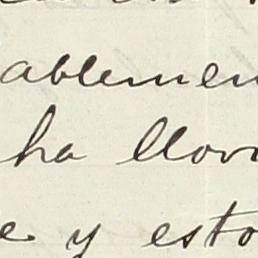 ablemen
ha llovi
e y esto